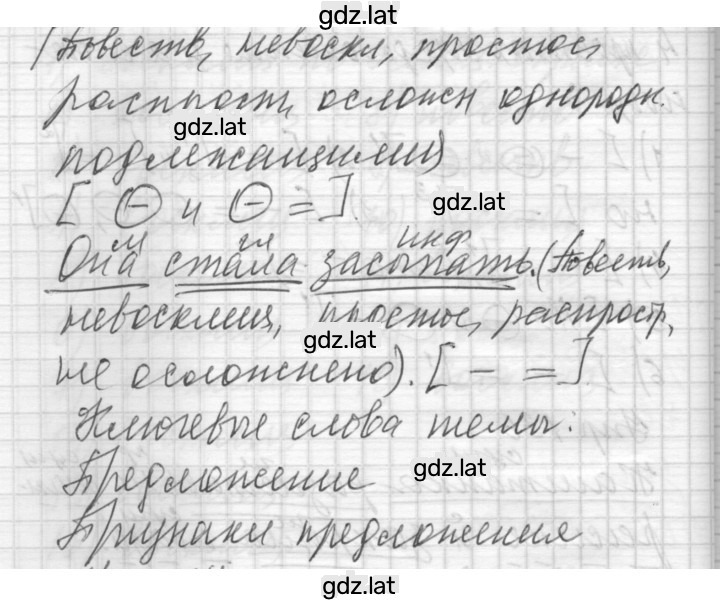 gdz.lat
(Повеств, невоскл, простое,
распрост, осложн однородн.
gdz.lat
подлежащими)
[ ⊖ и ⊖ = ].
gdz.lat
м гл инф
Она стала засыпать. (Повеств,
невосклиц, простое, распростр,
gdz.lat
не осложнено). [ – = ]
Ключевые слова темы:
gdz.lat
Предложение
Признаки предложения
gdz.lat